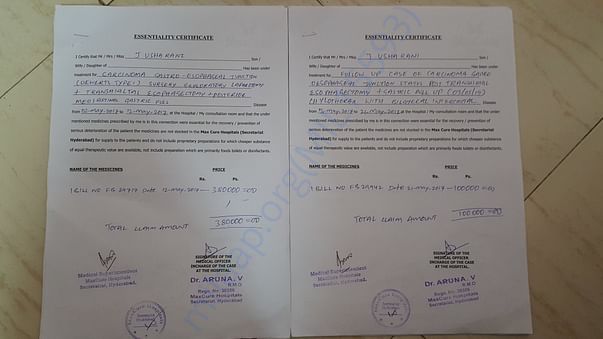 ESSENTIALITY CERTIFICATE
I Certify that Mr / Mrs / Miss J USHA RANI Son /
Wife / Daughter of Has been under
treatment for CARCINOMA GASTRO-ESOPHAGEAL JUNCTION
SURGERY EXPLORATORY LAPAROTOMY
+ TRANSHIATAL ESOPHAGECTOMY + POSTERIOR
MEDIASTINAL GASTRIC PULL Disease
from 02-MAY-2017 to 12-MAY-2017 at the Hospital / My consultation room and that the under
mentioned medicines prescribed by me is in this connection were essential for the recovery / prevention of
serious deterioration of the patient the medicines are not stocked in the Max Cure Hospitals (Secretariat
Hyderabad) for supply to the patients and do not include proprietary preparations for which cheaper substance
of equal therapeutic value are available, not include preparation which are primarily foods toilets or disinfectants.
NAME OF THE MEDICINES PRICE
Rs. Ps.
1 BILL NO FB 29717 Date 12-MAY-2017 — 380000=00
TOTAL CLAIM AMOUNT 380000=00
SIGNATURE OF THE
MEDICAL OFFICER
INCHARGE OF THE CASE
AT THE HOSPITAL.
Medical Superintendent
MaxCure Hospitals
Secretariat, Hyderabad.
Dr. ARUNA. V
R.M.O
MaxCure Hospitals
Secretariat, Hyderabad
ESSENTIALITY CERTIFICATE
I Certify that Mr / Mrs / Miss J USHA RANI Son /
Wife / Daughter of Has been under
treatment for FOLLOW UP CASE OF CARCINOMA GASTRO
ESOPHAGEAL JUNCTION STATUS POST TRANSHIATAL
ESOPHAGECTOMY + GASTRIC PULL UP
HYLOTHORAX WITH BILATERAL Disease
from to 21-MAY-2017 at the Hospital / My consultation room and that the under
mentioned medicines prescribed by me is in this connection were essential for the recovery / prevention of
serious deterioration of the patient the medicines are not stocked in the Max Cure Hospitals (Secretariat
Hyderabad) for supply to the patients and do not include proprietary preparations for which cheaper substance
of equal therapeutic value are available, not include preparation which are primarily foods toilets or disinfectants.
NAME OF THE MEDICINES PRICE
Rs. Ps.
1 BILL NO FB 29942 Date 21-MAY-2017 — 100000=00
TOTAL CLAIM AMOUNT 100000=00
SIGNATURE OF THE
MEDICAL OFFICER
INCHARGE OF THE CASE
AT THE HOSPITAL.
Medical Superintendent
MaxCure Hospitals
Secretariat, Hyderabad.
Dr. ARUNA. V
R.M.O
MaxCure Hospitals
Secretariat, Hyderabad